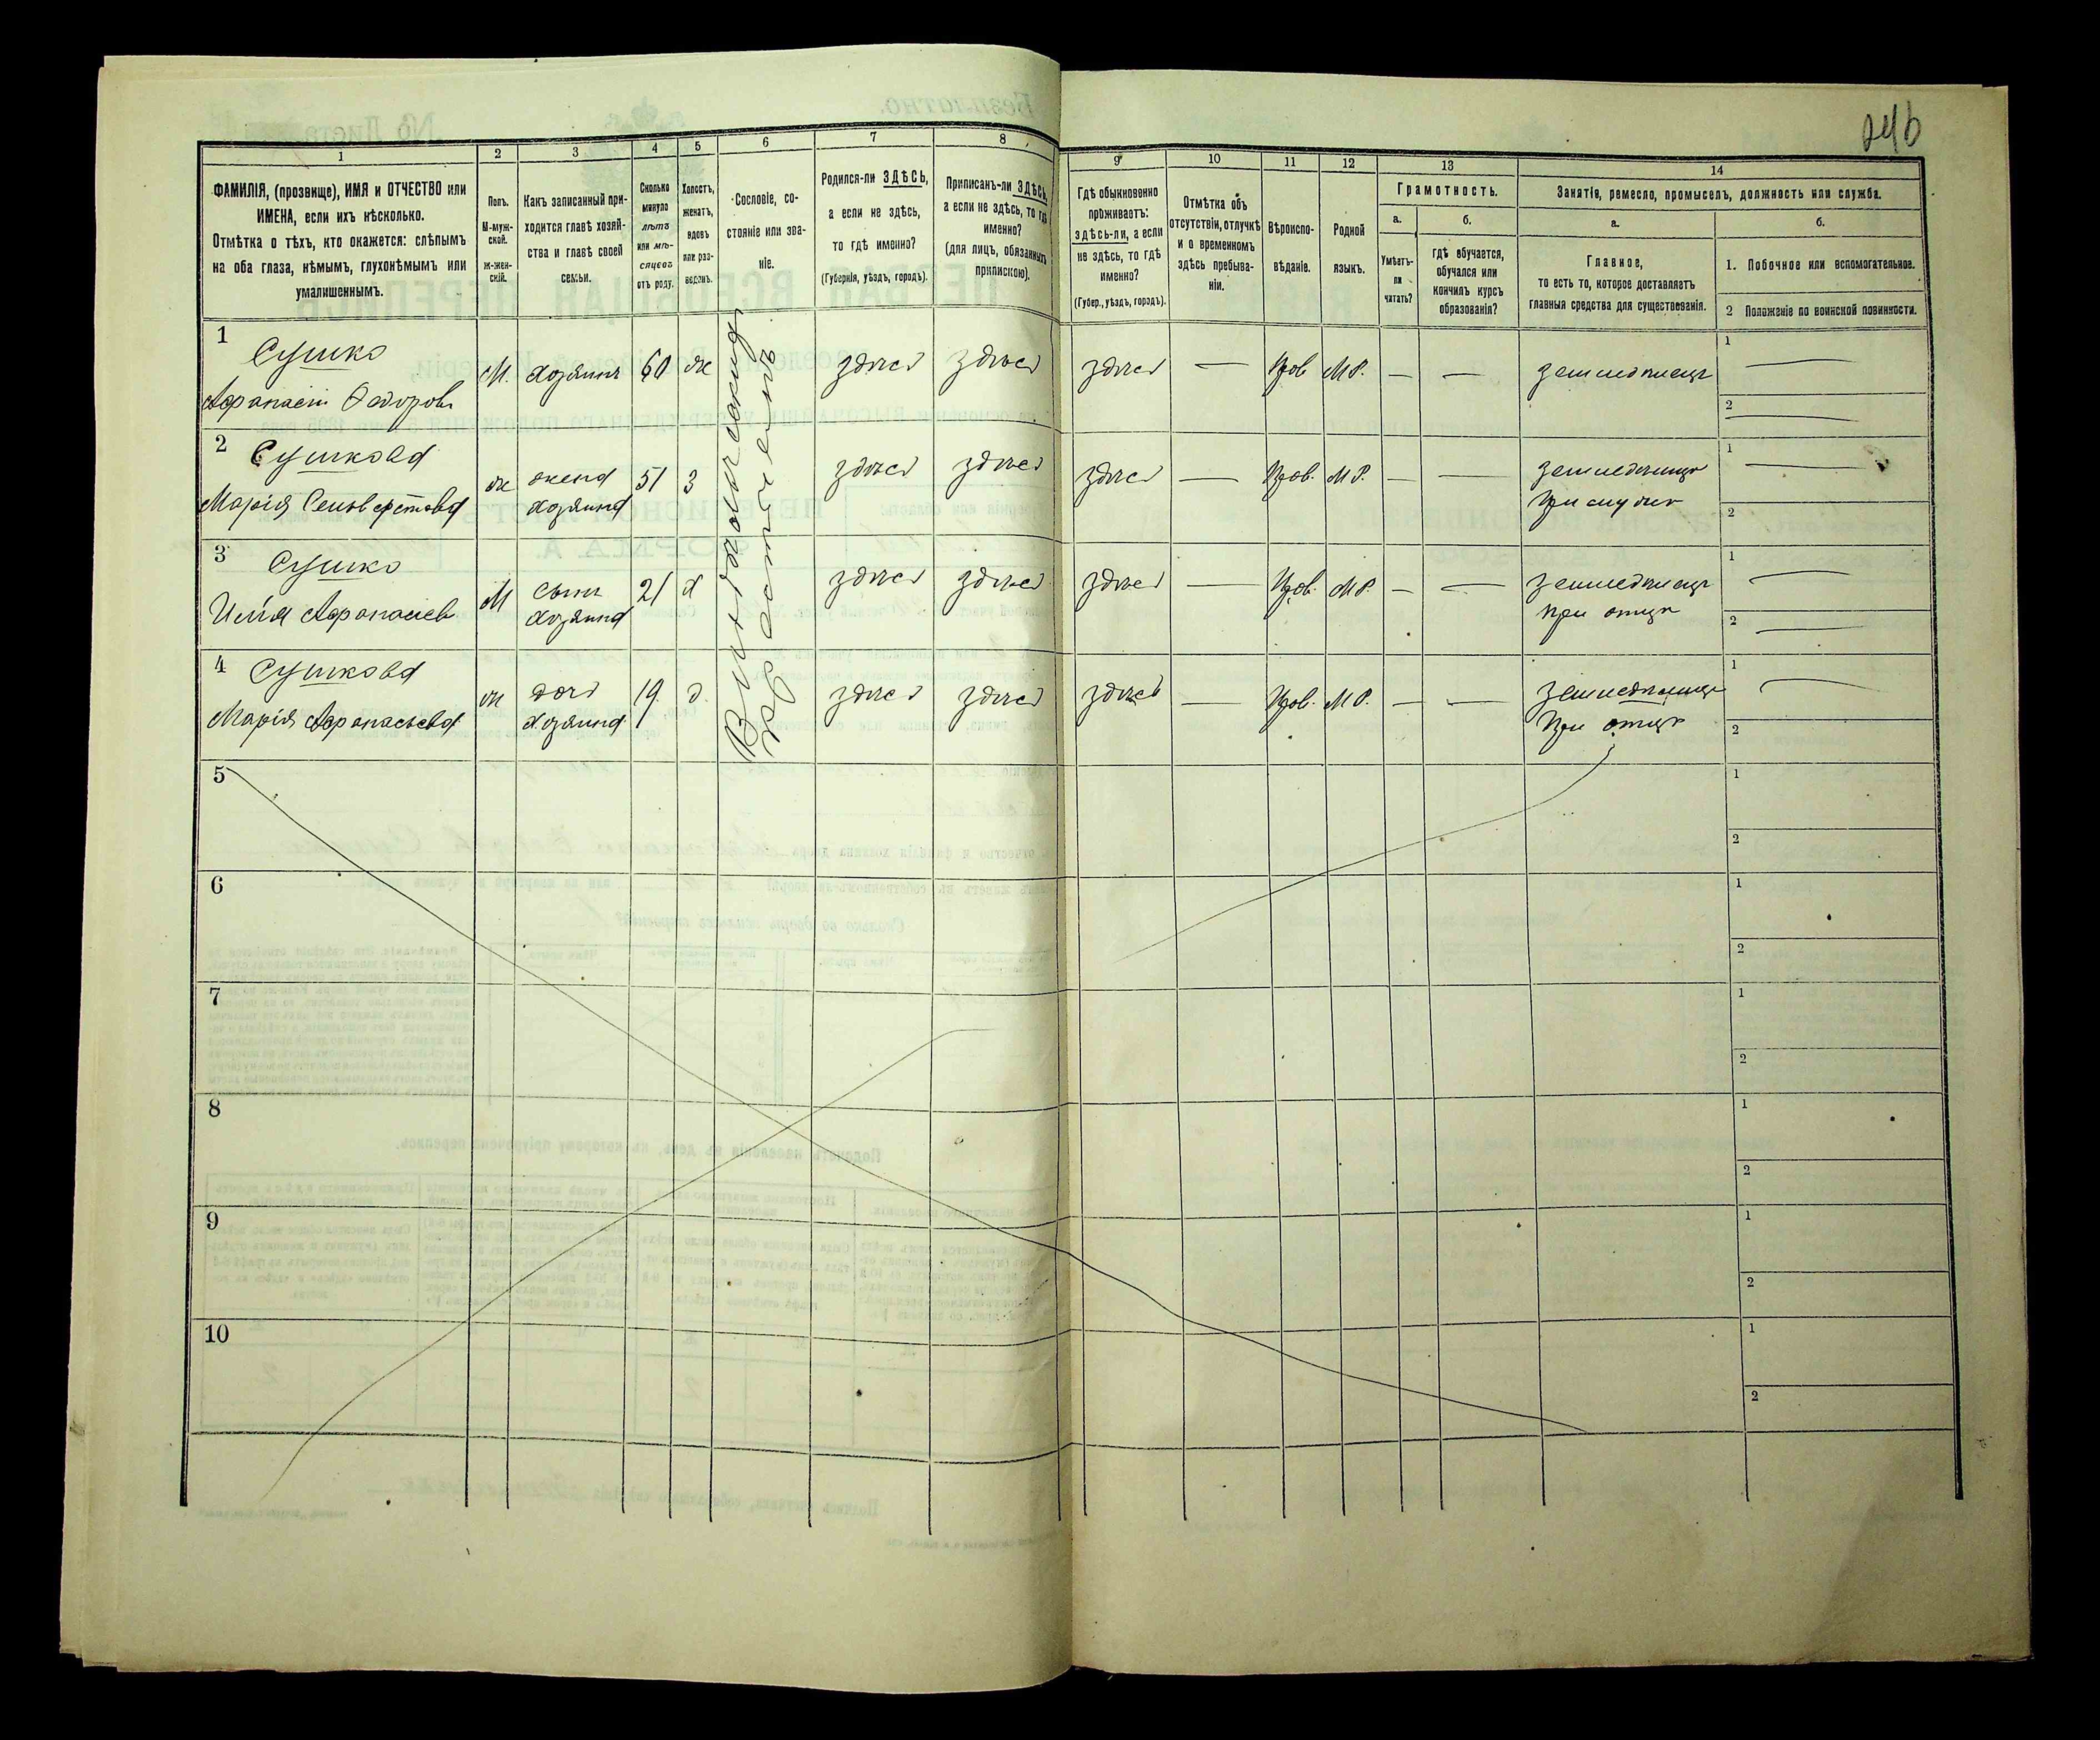 246
1
2
3
4
5
6
7
8
9
10
11
12
13
14
ФАМИЛІЯ, (прозвище), ИМЯ и ОТЧЕСТВО или
ИМЕНА, если ихъ нѣсколько.
Отмѣтка о тѣхъ, кто окажется: слѣпымъ
на оба глаза, нѣмымъ, глухонѣмымъ или
умалишеннымъ.
Полъ.
М-муж-
ской.
Ж-жен-
скій.
Какъ записанный при-
ходится главѣ хозяй-
ства и главѣ своей
семьи.
Сколько
минуло
лѣтъ
или мѣ-
сяцевъ
отъ роду.
Холостъ,
женатъ,
вдовъ
или раз-
веденъ.
Сословіе, со-
стояніе или зва-
ніе.
Родился-ли ЗДѢСЬ,
а если не здѣсь,
то гдѣ именно?
(Губернія, уѣздъ, городъ).
Приписанъ-ли ЗДѢСЬ,
а если не здѣсь, то гдѣ
именно?
(для лицъ, обязанныхъ
припискою).
Гдѣ обыкновенно
проживаетъ:
здѣсь-ли, а если
не здѣсь, то гдѣ
именно?
(Губер., уѣздъ, городъ).
Отмѣтка объ
отсутствіи, отлучкѣ
и о временномъ
здѣсь пребыва-
ніи.
Вѣроиспо-
вѣданіе.
Родной
языкъ.
Грамотность.
а.
б.
Умѣетъ-
ли
читать?
гдѣ обучается,
обучался или
кончилъ курсъ
образованія?
Занятіе, ремесло, промыселъ, должность или служба.
а.
б.
Главное,
то есть то, которое доставляетъ
главныя средства для существованія.
1. Побочное или вспомогательное.
2 Положеніе по воинской повинности.
1
Сушко
Афанасій Федоровъ
М.
хозяинъ
60
ж
здѣсь
здѣсь
здѣсь
—
Прав
М Р.
—
—
земледѣлецъ
1
—
2
—
2
Сушкова
Марія Селиверстова
ж
жена
хозяина
51
з
здѣсь
здѣсь
здѣсь
—
Прав.
М Р.
—
—
при мужѣ
1
—
2
3
Сушко
Илія Афанасіев
М
сынъ
хозяина
21
х
здѣсь
здѣсь
здѣсь
—
Прав.
М Р.
—
—
земледѣлецъ
при отцѣ
1
—
2
—
4
Сушкова
Марія Афанасьева
ж
дочь
хозяина
19
д
здѣсь
здѣсь
здѣсь
—
Прав.
М Р.
—
—
при отцѣ
1
—
2
5
1
2
6
1
2
7
1
2
8
1
2
9
1
2
10
1
2